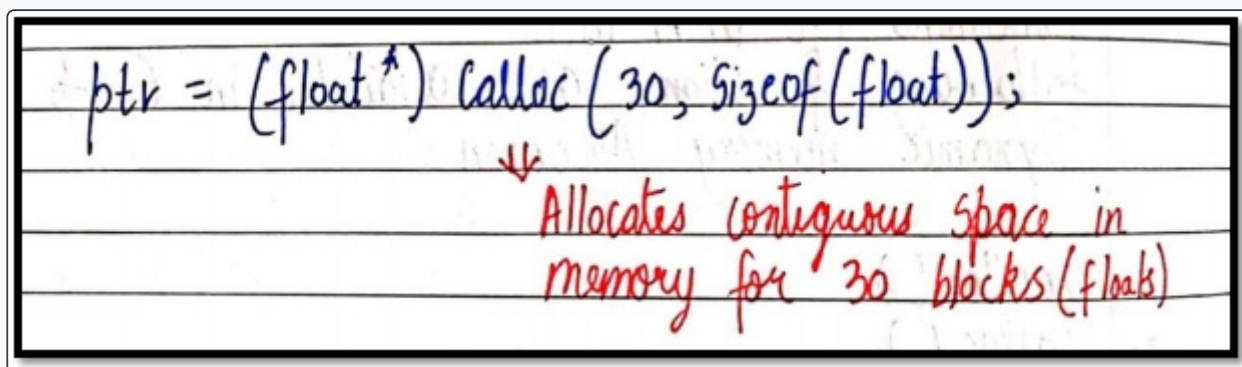 ptr = (float*) Calloc(30, Sizeof(float));
Allocates contiguous space in
memory for 30 blocks (floats)